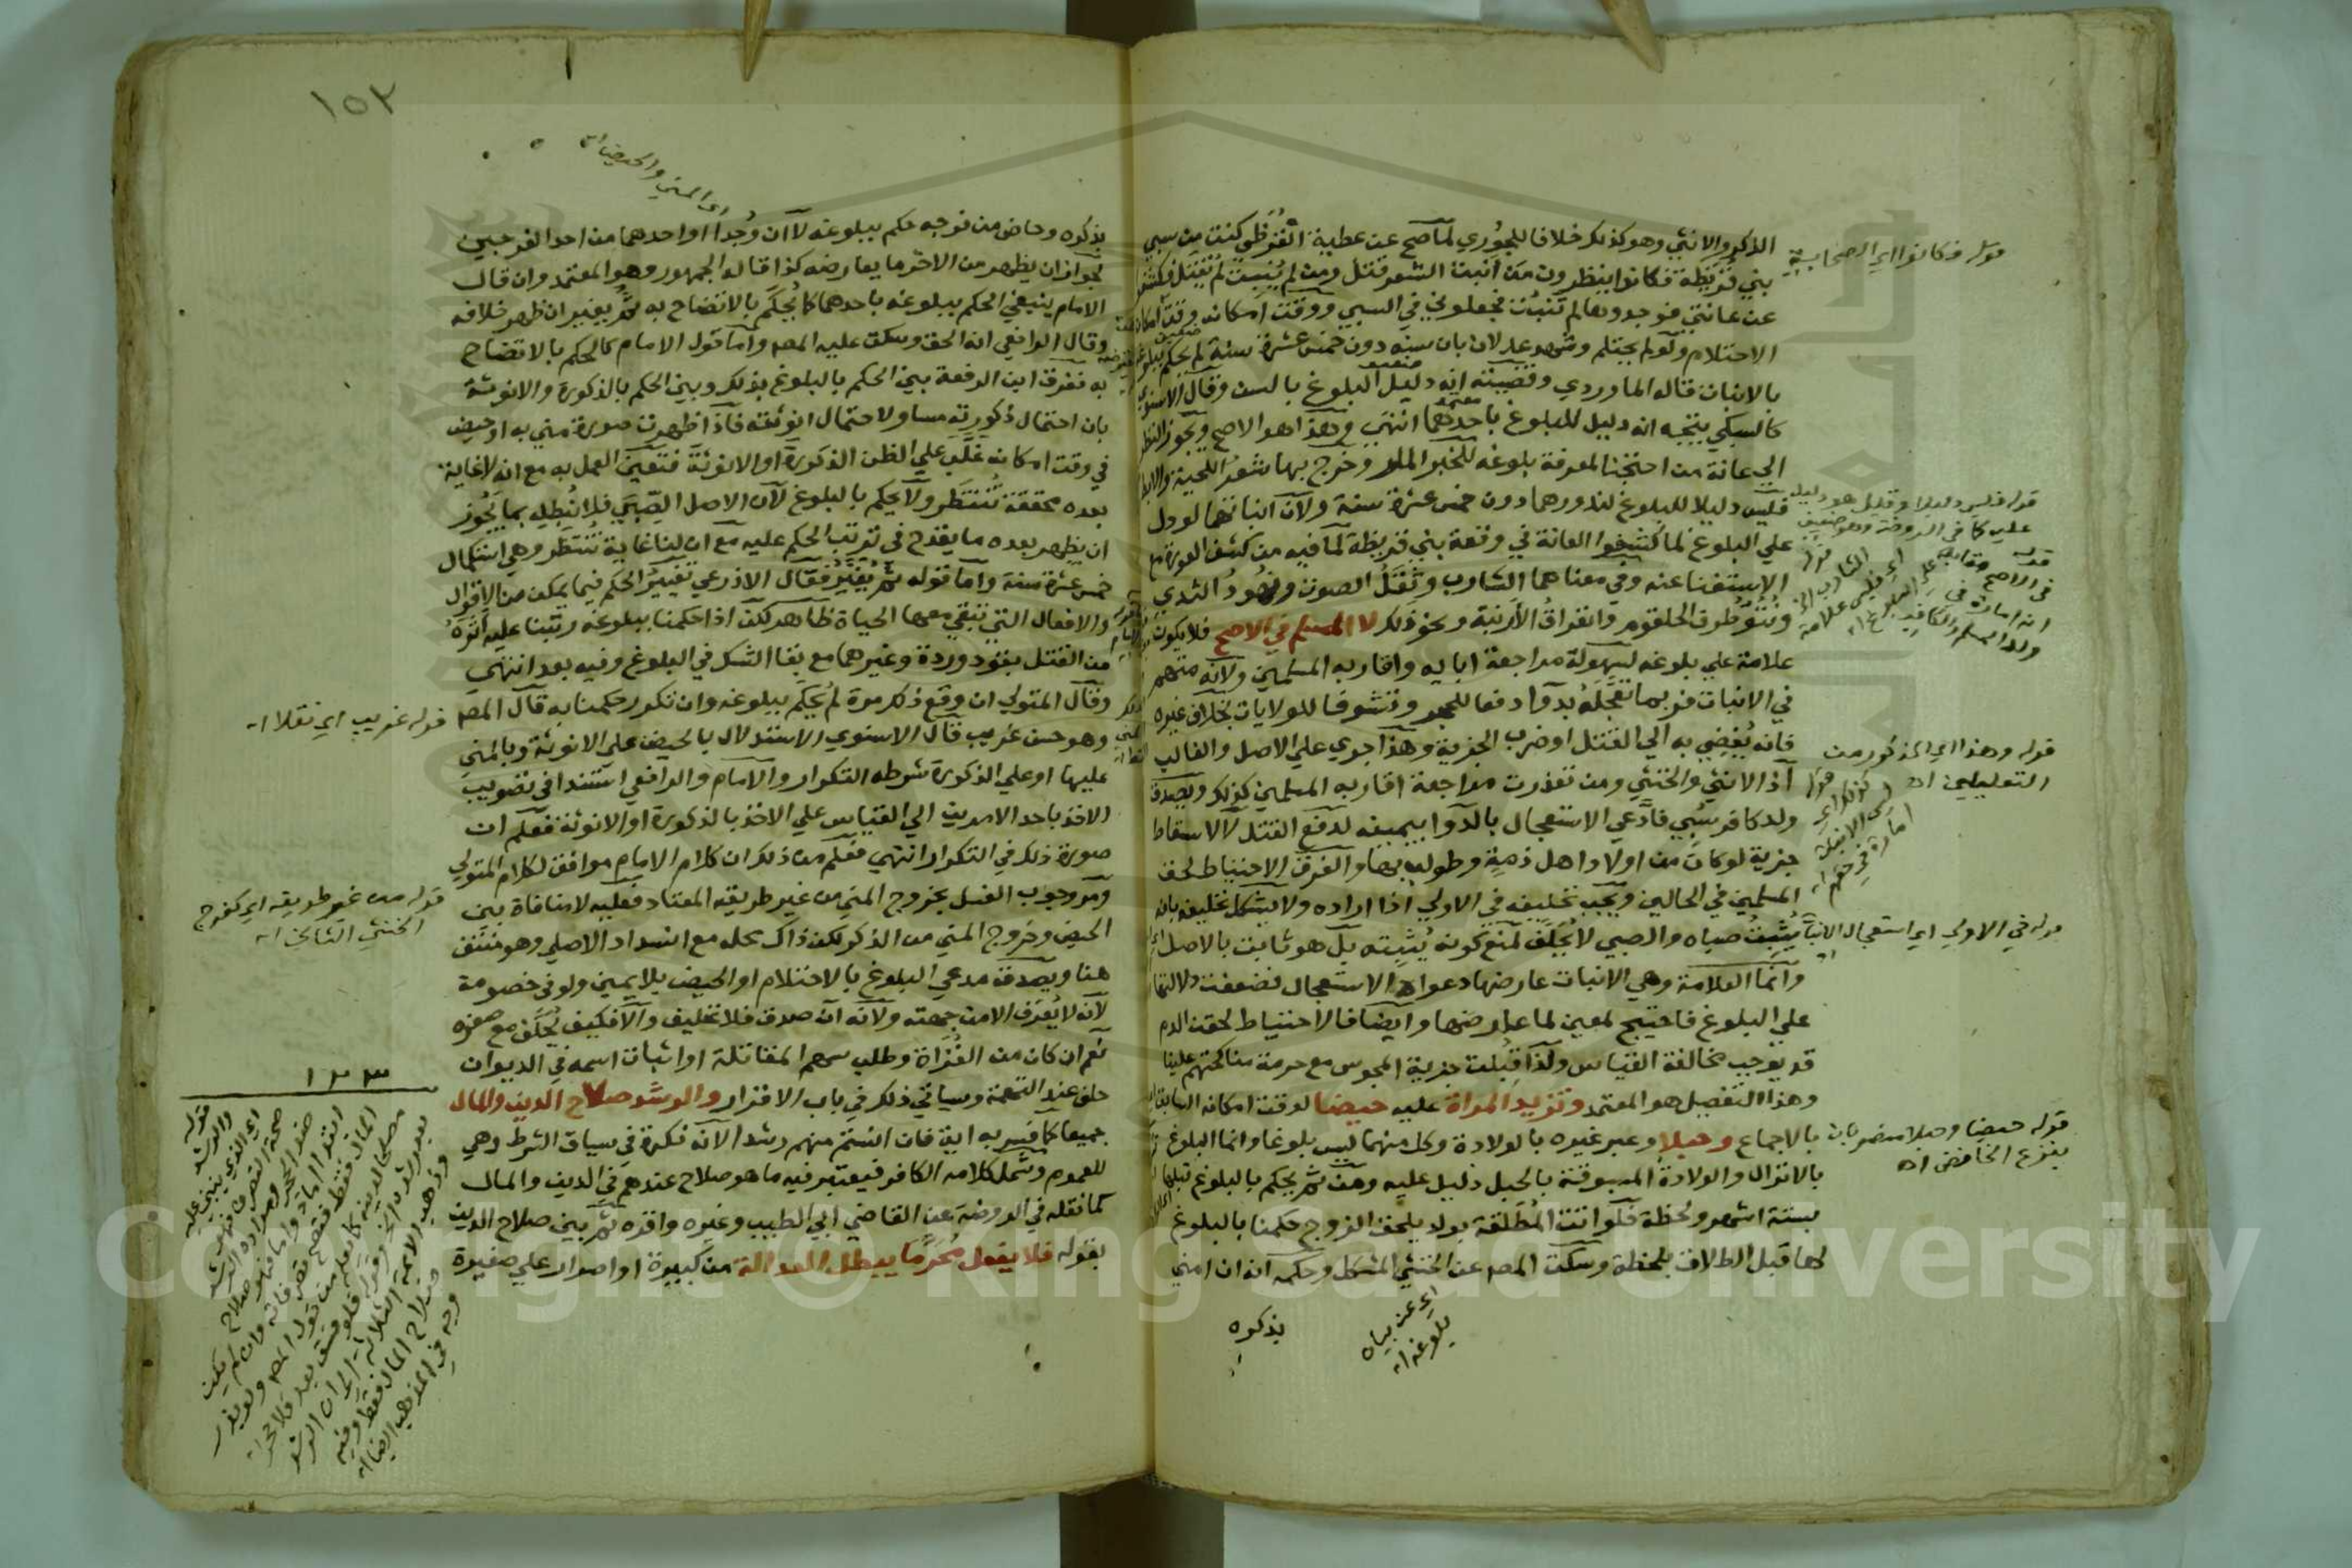 الذكر والانثي وهو كذلك خلافا للجوري لما صح عن عطية القرظي كنت من سبي
بني قريظة فكانوا ينظرون من أنبت الشعر قتل ومن لم ينبت لم يقتل فكشفوا
عن عانتي فوجدوها لم تنبت فجعلوني في السبي ووقت امكانه وقت امكان
الاحتلام ولو لم يحتلم وشهد عدلان بان سنه دون خمس عشرة سنة لم يحكم ببلوغه
بالانبات قاله الماوردي وقضيته انه دليل البلوغ بالسن وقال الاسنوي
كالسبكي يتجه انه دليل للبلوغ باحدهما انتهى وهذا هو الاصح ويجوز النظر
الي عانة من احتجنا لمعرفة بلوغه للخبر المار وخرج بها شعر اللحية والابط
فليس دليلا للبلوغ لندورهما دون خمس عشرة سنة ولان انباتهما لو دل
علي البلوغ لما كشفوا العانة في وقعة بني قريظة لما فيه من كشف العورة مع
الاستغناء عنه وفي معناهما الشارب وثقل الصوت ونهود الثدي
ونتو طرف الحلقوم وانفراق الأرنبة ونحو ذلك لا المسلم في الاصح فلا يكون
علامة علي بلوغه لسهولة مراجعة ابايه واقاربه المسلمين ولانه متهم
في الانبات فربما تعجله بدوا دفعا للحجر وتشوفا للولايات بخلاف غيره
فانه يفضي به الي القتل او ضرب الجزية وهذا جري علي الاصل والغالب
اذ الانثي والخنثي ومن تعذرت مراجعة اقاربه المسلمين كذلك ويصدق
ولد كافر سبي فادعي الاستعجال بالدوا بيمينه لدفع القتل لا لاسقاط
جزية لو كان من اولاد اهل ذمة وطولب بها والفرق الاحتياط لحق
المسلمين في الحالين ويجب تحليفه في الاولي اذا اراده ولا يشكل تحليفه بانه
يثبت صباه والصبي لا يحلف لمنع كونه يثبته بل هو ثابت بالاصل
وانما العلامة وهي الانبات عارضها دعواه الاستعجال فضعفت دلالتها
علي البلوغ فاحتيج لمعين لما عارضها وايضا فالاحتياط لحقن الدم
قد يوجب مخالفة القياس ولذا قبلت جزية المجوس مع حرمة مناكحتهم علينا
وهذا التفصيل هو المعتمد وتزيد المراة عليه حيضا لوقت امكانه السابق
بالاجماع وحبلا وعبر غيره بالولادة وكل منهما ليس بلوغا وانما البلوغ
بالانزال والولادة المسبوقة بالحبل دليل عليه ومن ثم يحكم بالبلوغ قبلها
بستة اشهر ولحظة فلو اتت المطلقة بولد يلحق الزوج حكمنا بالبلوغ
لها قبل الطلاق بلحظة وسكت المصـ عن الخنثي المشكل وحكمه انه ان امني
يذكره
اي عن بيان
بلوغه اه
قوله فكانوا اي الصحابة
قوله فليس دليلا وقيل هو دليل
عليه كما في الروضة وهو ضعيف
قوله وهذا اي المذكور من
التعليلين اه
قوله كذلك اي
قوله في الاولي اي استعجال الانبات
قوله حيضا وحبلا منصوبان
بنزع الخافض اه
١٥٢
اي المني والحيض اه
بذكره وحاض من فرجه حكم ببلوغه لا ان وجدا او احدهما من احد الفرجين
لجواز ان يظهر من الاخر ما يعارضه كذا قاله الجمهور وهو المعتمد وان قال
الامام ينبغي الحكم ببلوغه باحدهما كما يحكم بالاتضاح به ثم يغير ان ظهر خلافه
وقال الرافعي انه الحق وسكت عليه المصـ واما قول الامام كالحكم بالاتضاح
به ففرق ابن الرفعة بين الحكم بالبلوغ بذلك وبين الحكم بالذكورة والانوثة
بان احتمال ذكورته مساو لاحتمال انوثته فاذا ظهرت صورة مني به او حيض
في وقت امكانه غلب علي الظن الذكورة او الانوثة فتعين العمل به مع انه لا غاية
بعده محققة تنتظر ولا يحكم بالبلوغ لان الاصل الصبي فلا نبطله بما يجوز
ان يظهر بعده ما يقدح في ترتب الحكم عليه مع ان لنا غاية تنتظر وهي استكمال
خمس عشرة سنة واما قوله ثم يغير فقال الاذرعي تغيير الحكم فيما يمكن من الاقوال
والافعال التي تبقي معها الحياة ظاهر لكن اذا حكمنا ببلوغه رتبنا عليه أثره
من القتل بقود وردة وغيرهما مع بقا الشك في البلوغ وفيه بعد انتهى
وقال المتولي ان وقع ذلك مرة لم يحكم ببلوغه وان تكرر حكمنا به قال المصـ
وهو حسن غريب قال الاسنوي الاستدلال بالحيض علي الانوثة وبالمني
عليها او علي الذكورة شرطه التكرار والامام والرافعي استندا في تصويب
الاخذ باحد الامرين الي القياس علي الاخذ بالذكورة او الانوثة فعلم ان
صورة ذلك في التكرار انتهي فعلم من ذلك ان كلام الامام موافق لكلام المتولي
ومر وجوب الغسل بخروج المني من غير طريقه المعتاد فعليه لا منافاة بين
الحيض وخروج المني من الذكر لكن ذاك محله مع انسداد الاصلي وهو منتف
هنا ويصدق مدعي البلوغ بالاحتلام او الحيض بلا يمين ولو في خصومة
لانه لا يعرف الا من جهته ولانه ان صدق فلا تحليف والا فكيف يحلف مع صغره
نعم ان كان من الغزاة وطلب سهم المقاتلة او اثبات اسمه في الديوان
حلف عند التهمة وسياتي ذلك في باب الاقرار والرشد صلاح الدين والمال
جميعا كما فسر به اية فان انستم منهم رشدا لانه نكرة في سياق الشرط وهي
للعموم وشمل كلامه الكافر فيعتبر فيه ما هو صلاح عندهم في الدين والمال
كما نقله في الروضة عن القاضي ابي الطيب وغيره واقره ثم بين صلاح الدين
بقوله فلا يفعل محرما يبطل العدالة من كبيرة او اصرار علي صغيرة
قوله غريب اي نقلا اه
قوله من غير طريقه اي كفرج
الخنثي
١٢٣
Copyright © King Saud University